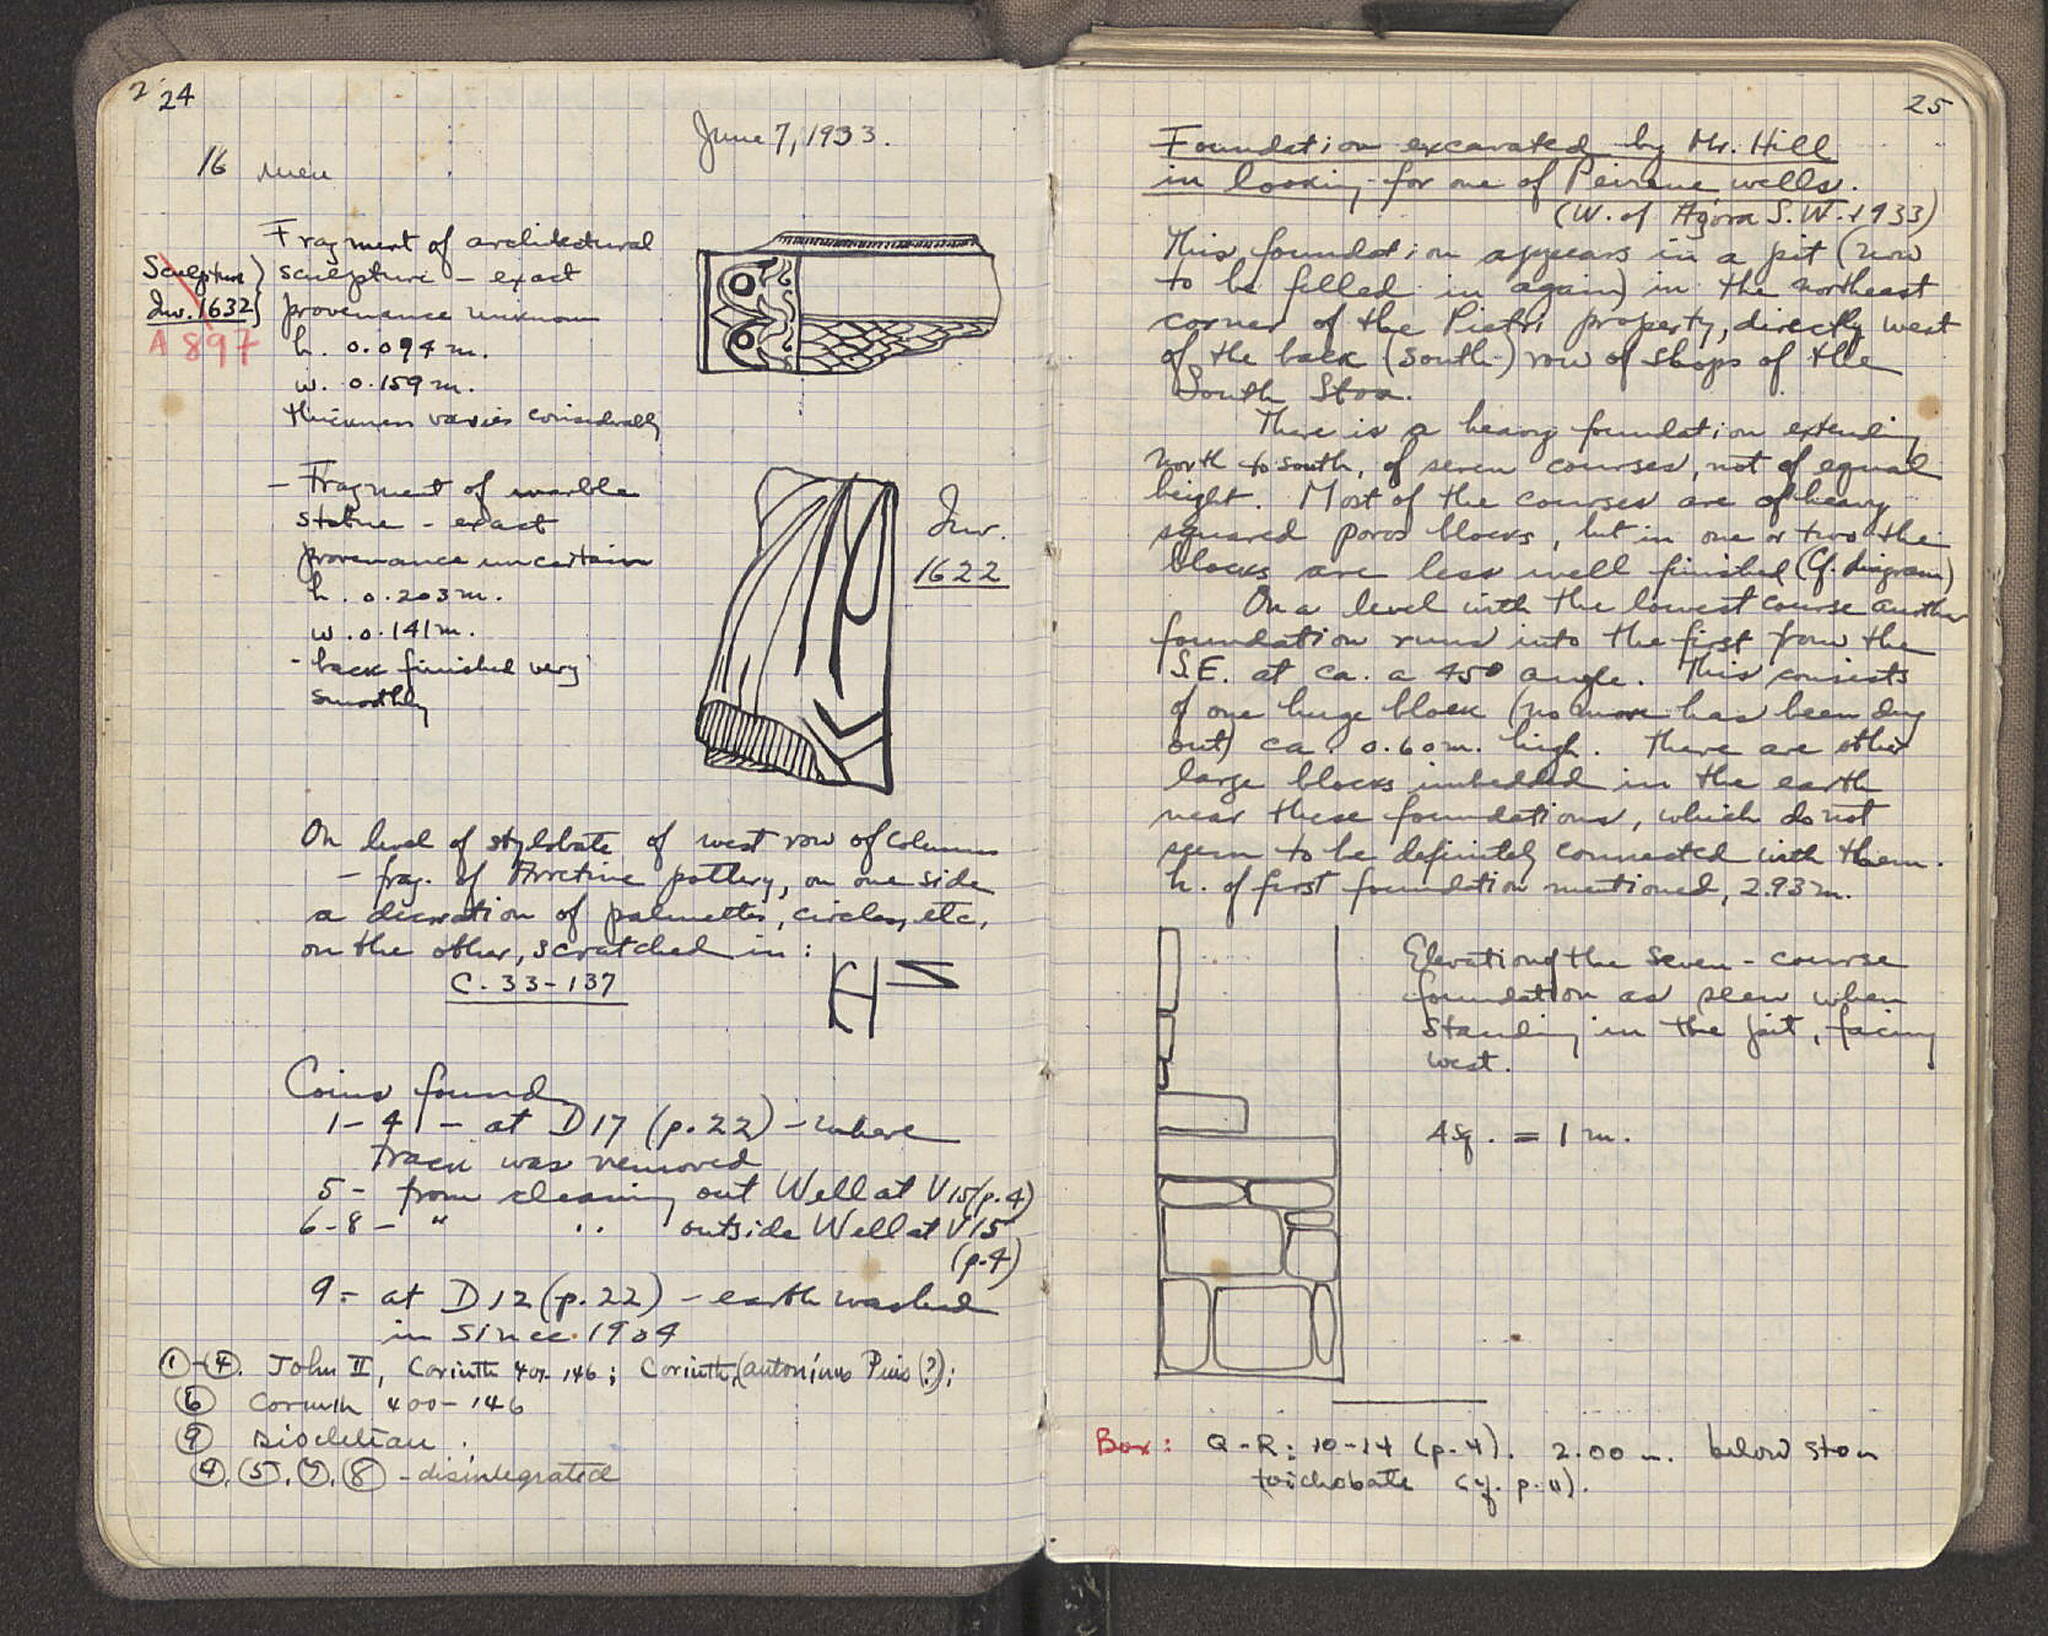 2 24
June 7, 1933.
16 men
Fragment of architectural
sculpture - exact
provenance unknown
h. 0.094 m.
w. 0.159 m.
thickness varies considerably
Sculpture
Inv. 1632
A 897
- Fragment of marble
statue - exact
provenance uncertain
h. 0.203 m.
w. 0.141 m.
- back finished very
smoothly
Inv.
1622
On level of stylobate of west row of columns
- frag. of Arretine pottery, on one side
a decoration of palmettes, circles, etc.
on the other, scratched in:
C. 33-137
Coins found
1-4 - at D17 (p. 22) - where
track was removed
5 - from cleaning out Well at V15 (p. 4)
6-8 - " " outside Well at V15
(p. 4)
9 - at D12 (p. 22) - earth washed
in since 1904
①-④. John II, Corinth 400-146; Corinth, (Antoninus Pius (?);
⑥ Corinth 400-146
⑨ Diocletian.
④, ⑤, ⑦, ⑧ - disintegrated
25
Foundation excavated by Mr. Hill
in looking for one of Peirene wells.
(W. of Agora S. W. 1933)
This foundation appears in a pit (now
to be filled in again) in the northeast
corner of the Pietri property, directly west
of the back (south) row of shops of the
South Stoa.
There is a heavy foundation extending
north to south, of seven courses, not of equal
height. Most of the courses are of heavy
squared poros blocks, but in one or two the
blocks are less well finished (Cf. diagram)
On a level with the lowest course another
foundation runs into the first from the
S.E. at ca. a 45° angle. This consists
of one huge block (no more has been dug
out) ca. 0.60 m. high. There are other
large blocks imbedded in the earth
near these foundations, which do not
seem to be definitely connected with them.
h. of first foundation mentioned, 2.93 m.
Elevation of the seven-course
foundation as seen when
standing in the pit, facing
west.
4 sq. = 1 m.
Box: Q-R: 10-14 (p. 4). 2.00 m. below stoa
toichobate (cf. p. 11).